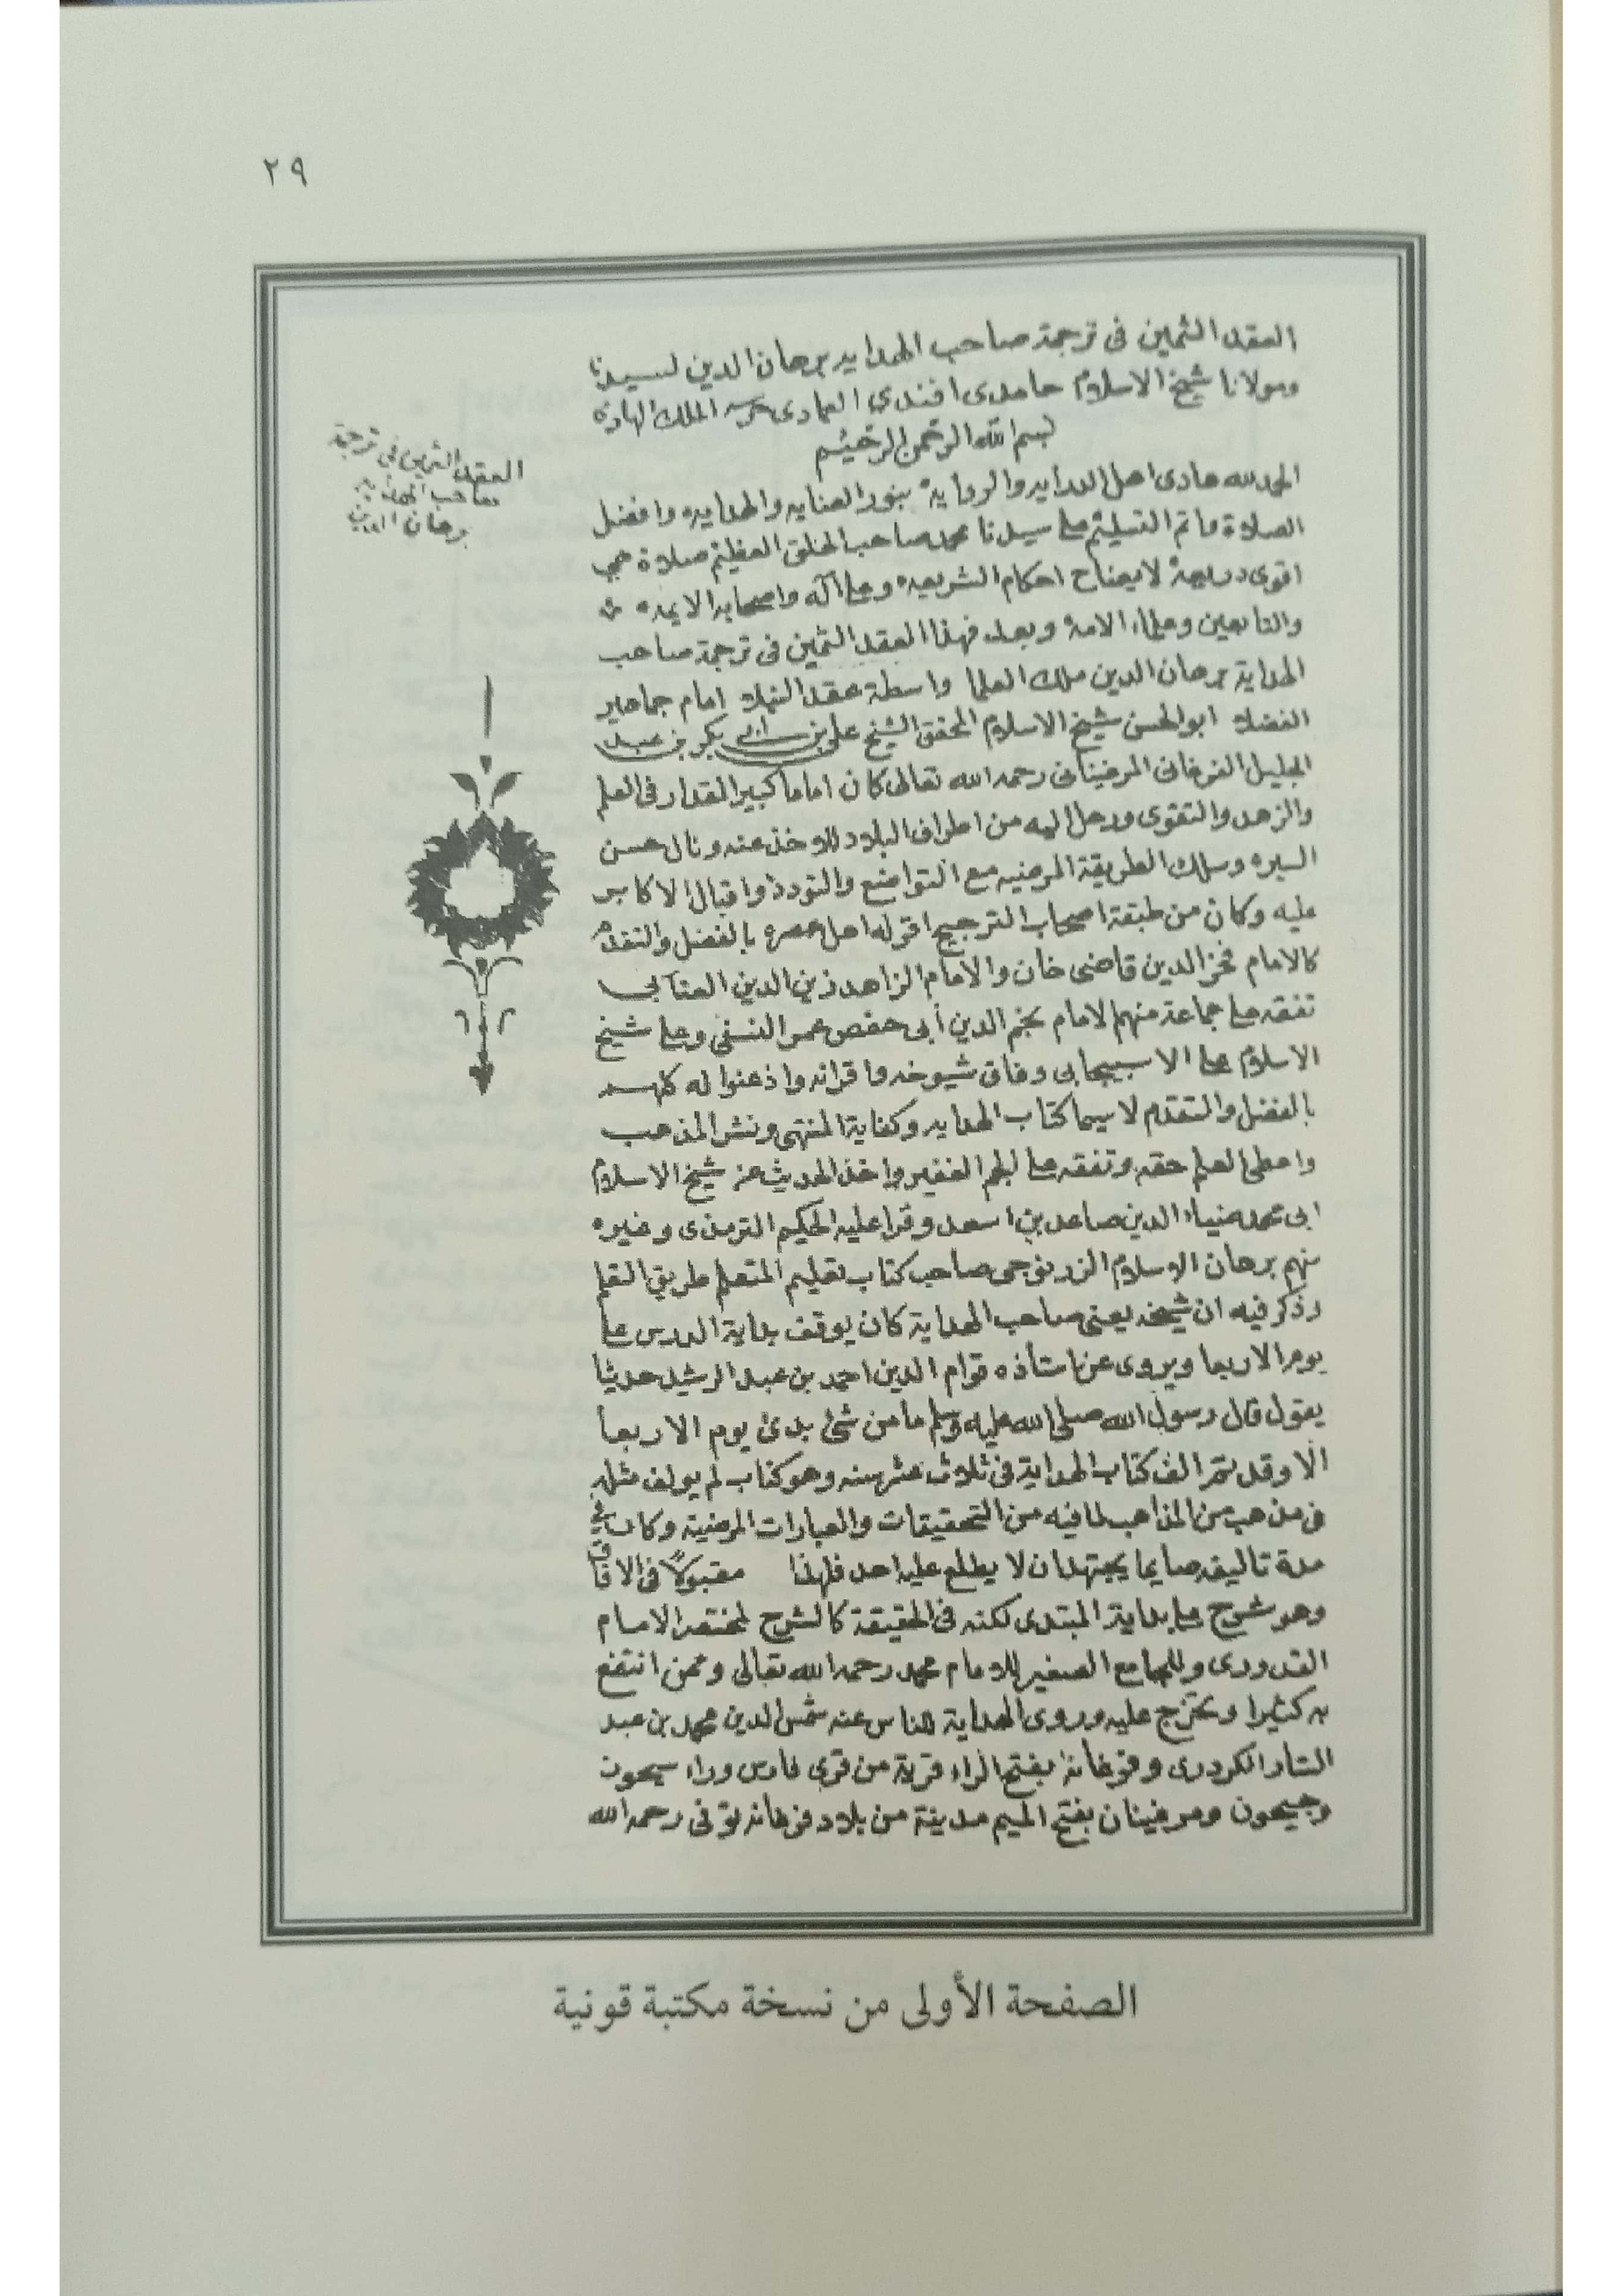 ٢٩
العقد الثمين فى ترجمة صاحب الهدايه برهان الدين لسيدنا
ومولانا شيخ الاسلام حامدى افندي العمادى حرسه الملك الهادى
بسم الله الرحمن الرحيم
العقد الثمين فى ترجمة
صاحب الهدايه
برهان الدين
الحمد لله هادى اهل الدرايه والروايه بنور العنايه والهدايه وافضل
الصلاة واتم التسليم على سيدنا محمد صاحب الخلق العظيم صلاة هي
اقوى ذريعة لايضاح احكام الشريعه وعلى آله واصحابه الايمه
والتابعين وعلماء الامة وبعد فهذا العقد الثمين فى ترجمة صاحب
الهداية برهان الدين ملك العلما واسطة عقد النبلا امام جماهير
الفضلا ابو الحسن شيخ الاسلام المحقق الشيخ على بن ابى بكر بن عبد
الجليل الفرغانى المرغينانى رحمه الله تعالى كان اماما كبير المقدار فى العلم
والزهد والتقوى ورحل اليه من اطراف البلاد للاخذ عنه ونال حسن
السيره وسلك الطريقة المرضيه مع التواضع والتودد واقبال الاكابر
عليه وكان من طبقة اصحاب الترجيح اقر له اهل عصره بالفضل والتقدم
كالامام فخر الدين قاضى خان والامام الزاهد زين الدين العتابى
تفقه على جماعة منهم الامام نجم الدين أبى حفص عمر النسفي وعلى شيخ
الاسلام على الاسبيجابى وفاق شيوخه واقرانه واذعنوا له كلهم
بالفضل والتقدم لا سيما كتاب الهدايه وكفاية المنتهى ونشر المذهب
واعطى العلم حقه وتفقه على الجم الغفير واخذ الحديث عن شيخ الاسلام
ابى محمد ضياء الدين صاعد بن اسعد وقرا عليه الحكيم الترمذى وغيره
منهم برهان الاسلام الزرنوجى صاحب كتاب تعليم المتعلم طريق التعلم
وذكر فيه ان شيخه يعنى صاحب الهداية كان يوقف بداية الدرس على
يوم الاربعا ويروى عن استاذه قوام الدين احمد بن عبد الرشيد حديثا
يقول قال رسول الله صلى الله عليه وسلم ما من شئ بدئ يوم الاربعا
الا وقد تم الف كتاب الهداية فى ثلاث عشر سنه وهو كتاب لم يولف مثله
فى مذهب من المذاهب لما فيه من التحقيقات والعبارات المرضية وكان فى
مدة تاليفه صايما يجتهد ان لا يطلع عليه احد فلهذا مقبولاً فى الافاق
وهو شرح على بداية المبتدى لكنه فى الحقيقة كالشرح لمختصر الامام
القدورى وللجامع الصغير للامام محمد رحمه الله تعالى وممن انتفع
به كثيرا وتخرج عليه وروى الهداية للناس عنه شمس الدين محمد بن عبد
الستار الكردرى وفرغانة بفتح الراء قرية من قرى فارس وراء سيحون
وجيحون ومرغينان بفتح الميم مدينة من بلاد فرغانه توفى رحمه الله
الصفحة الأولى من نسخة مكتبة قونية